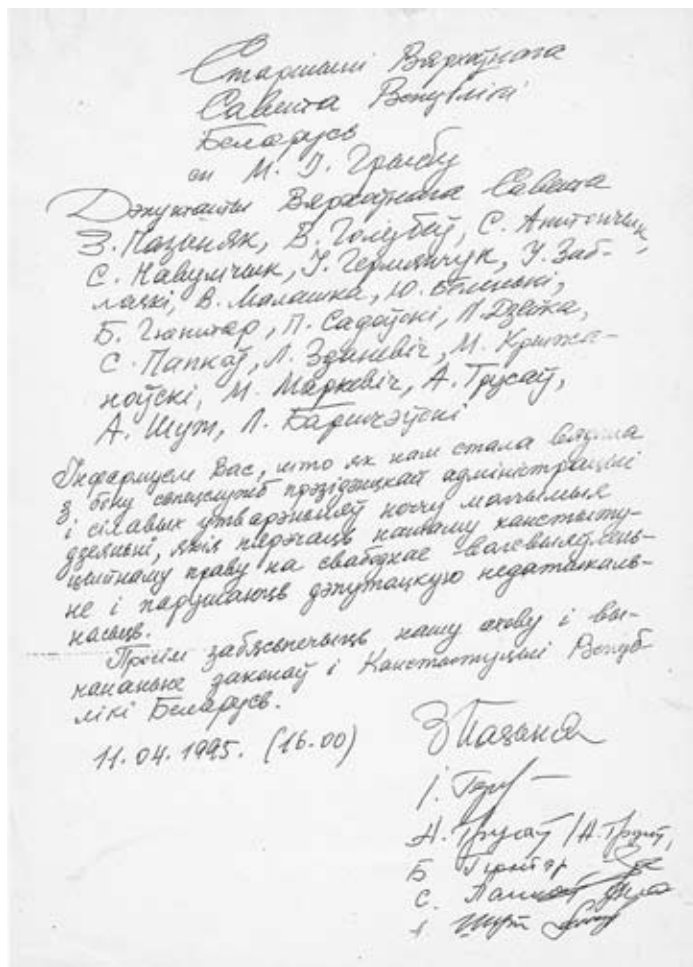 Старшыні Вярхоўнага
Савета Рэспублікі
Беларусь
сп М. І. Грыбу
Дэпутаты Вярхоўнага Савета
З. Пазьняк, В. Голубеў, С. Антончык,
С. Навумчык, У. Герменчук, У. Заб-
лацкі, В. Малашка, Ю. Беленькі,
Б. Гюнтэр, П. Садоўскі, Л. Дзейка,
С. Папкоў, Л. Зданевіч, М. Крыжа-
ноўскі, М. Маркевіч, А. Трусаў,
А. Шут, Л. Баршчэўскі
Інфармуем Вас, што як нам стала вядома
з боку спецслужб прэзідэнцкай адміністрацыі
і сілавых утварэньняў ноччу магчымыя
дзеяньні, якія пярэчаць нашаму канстыту-
цыйнаму праву на свабоднае волевыяўлень-
не і парушаюць дэпутацкую недатыкаль-
насьць.
Просім забясьпечыць нашу ахову і вы-
кананьне законаў і Канстытуцыі Рэспуб-
лікі Беларусь.
11.04.1995. (16.00)
З Пазьняк
А. Трусаў /А. Трусаў,
Б Гюнтэр
С. Папкоў
Шут